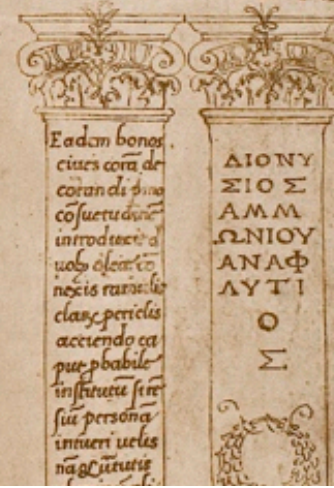 Eadem bonos
ciues corā de
corandi
cōsuetudinē
introducit
uolꝫ olea cō
nexis
clasꝫ periclis
acciendo ca
put pbabile
institutū
siū persona
intueri uelis
nāꝫ uirtutis
ΔΙΟΝΥ
ΣΙΟΣ
ΑΜΜ
ΩΝΙΟΥ
ΑΝΑΦ
ΛΥΤΙ
Ο
Σ